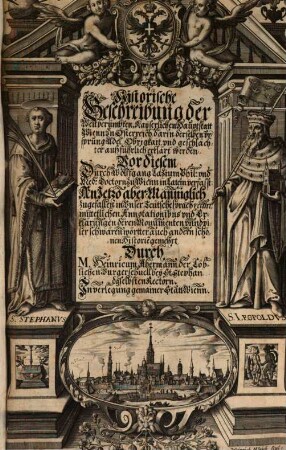 Historische
Beschreibung der
Weitberumbten, Kayserlichen Hauptstatt
Wienn in Osterreich darin derselben vr
sprung Adel Obrigkait vnd geschlach
ter außfuhrlich erklärt werden
Vor diesem
Durch Wolfgang Latzium Phil: vnd
Med: Doctorn zu Wienn in Latein verfast
An Jetzo aber Männiglich
zu gefallen in vnser Teutsche sprach
mittellichen Annotationibus vnd Er
klärungen deren Monumenten vnd
er schwaren wörter auch andern schö
nen Historien gemehrt
Durch
M. Heinricum Abermann der Löb
lichen Burgerschuell bey St. Stephan
daselbsten Rectorn.
In verlegung gemainer Statt Wienn.
S. STEPHANVS
S. LEOPOLDVS